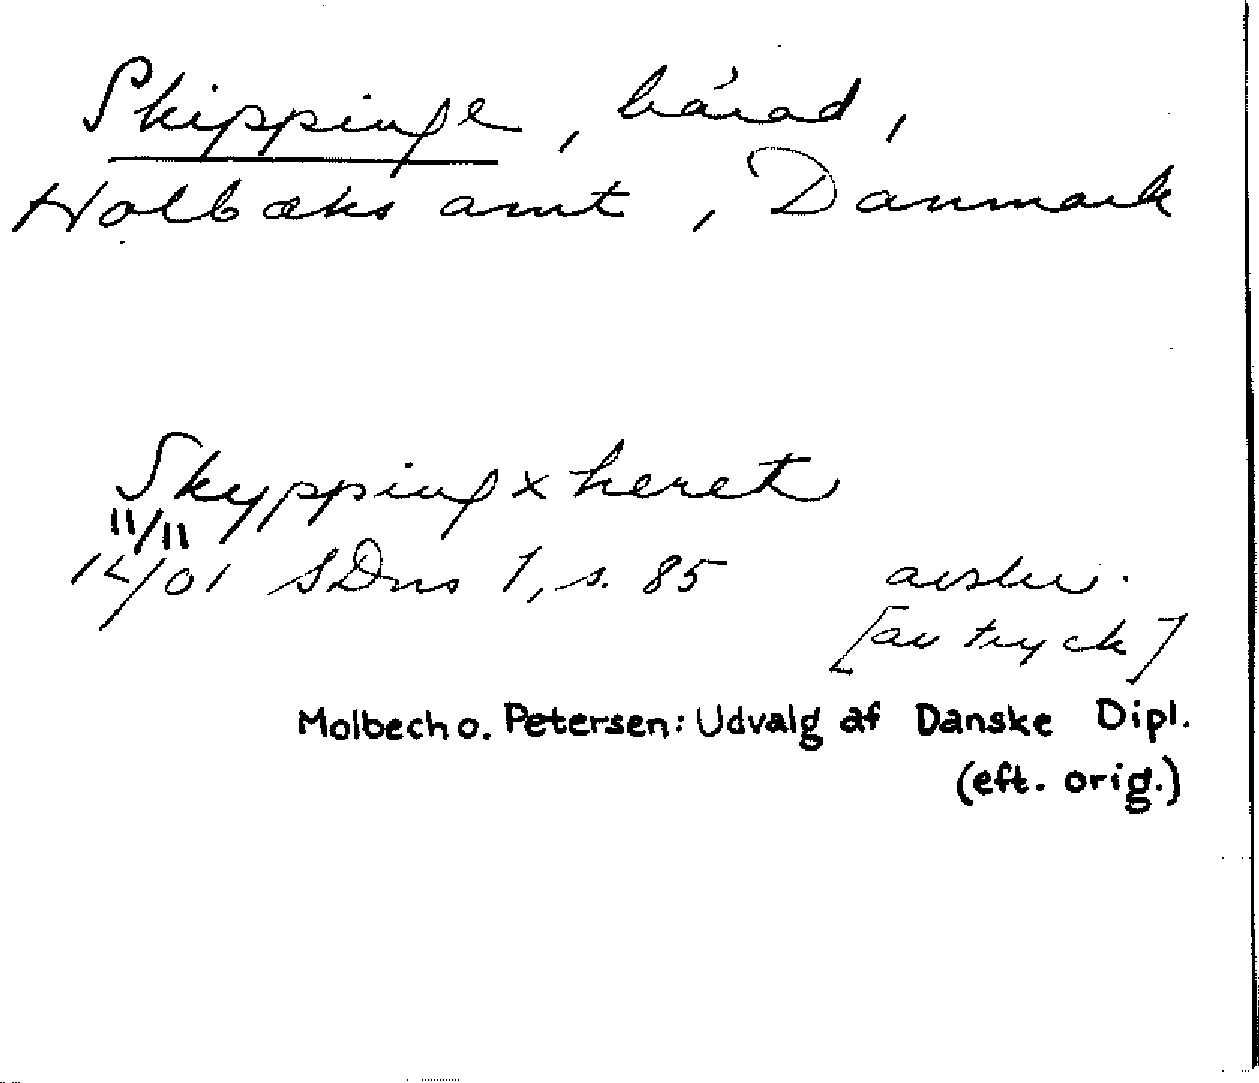 Skippinge, härad,
Holbæks amt, Danmark
Skypping x heret
11/11
14/01 SDns 1, s. 85 avskr.
[av tryck]
Molbech o. Petersen: Udvalg af Danske Dipl.
(eft. orig.)